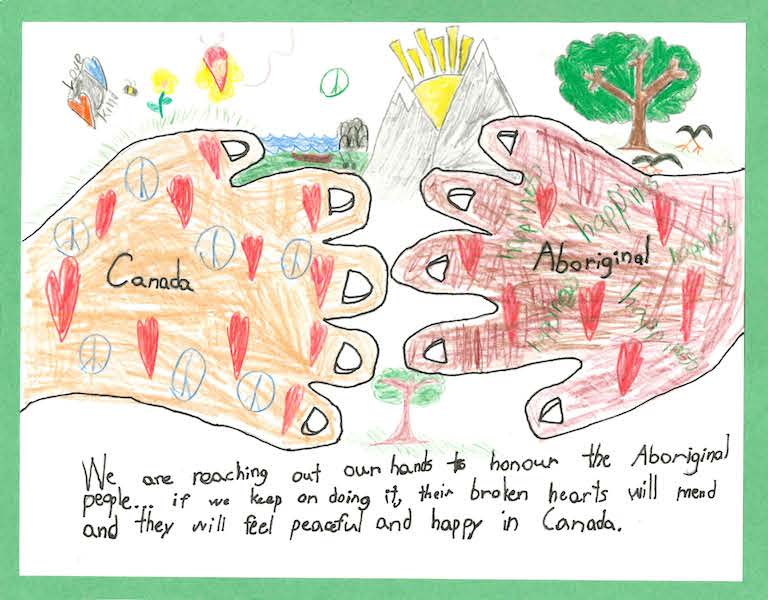 Love
Kind
Canada
Aboriginal
happines
happines
happines
happines
happines
We are reaching out our hands to honour the Aboriginal
people... if we keep on doing it, their broken hearts will mend
and they will feel peaceful and happy in Canada.